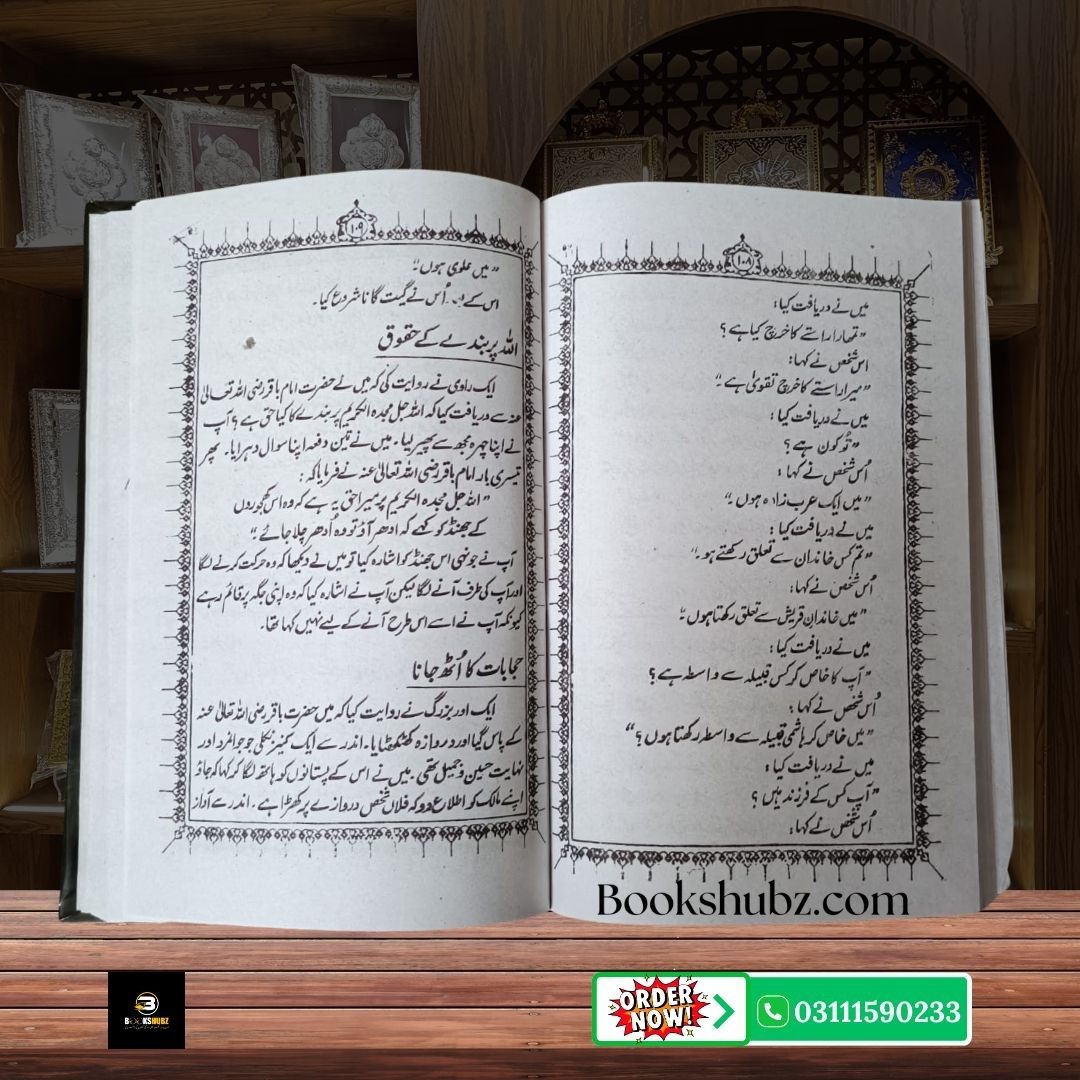 ۱۰۸
میں نے دریافت کیا:
"تمھارا راستے کا خرچ کیا ہے؟
اس شخص نے کہا:
"میرا راستے کا خرچ تقویٰ ہے۔"
میں نے دریافت کیا:
"تُو کون ہے؟
اُس شخص نے کہا:
"میں ایک عرب زادہ ہوں۔"
میں نے دریافت کیا:
"تم کس خاندان سے تعلق رکھتے ہو۔"
اُس شخص نے کہا:
"میں خاندانِ قریش سے تعلق رکھتا ہوں۔"
میں نے دریافت کیا:
"آپ کا خاص کر کس قبیلہ سے واسطہ ہے؟
اُس شخص نے کہا:
"میں خاص کر ہاشمی قبیلہ سے واسطہ رکھتا ہوں؟"
میں نے دریافت کیا:
"آپ کس کے فرزند ہیں؟
اُس شخص نے کہا:
۱۰۹
"میں علوی ہوں۔"
اس کے بعد اُس نے گیت گانا شروع کیا۔
اللہ پر بندے کے حقوق
ایک راوی نے روایت کی کہ میں نے حضرت امام باقر رضی اللہ تعالیٰ
عنہ سے دریافت کیا کہ اللہ جل مجدہ الکریم پر بندے کا کیا حق ہے؟ آپ
نے اپنا چہرہ مجھ سے پھیر لیا۔ میں نے تین دفعہ اپنا سوال دہرایا۔ پھر
تیسری بار امام باقر رضی اللہ تعالیٰ عنہ نے فرمایا کہ:
"اللہ جل مجدہ الکریم پر میرا حق یہ ہے کہ وہ اس کھجوروں
کے جھنڈ کو کہے کہ ادھر آؤ تو وہ اُدھر چلا جائے۔"
آپ نے جونہی اس جھنڈ کو اشارہ کیا تو میں نے دیکھا کہ وہ حرکت کرنے لگا
اور آپ کی طرف آنے لگا لیکن آپ نے اشارہ کیا کہ وہ اپنی جگہ پر قائم رہے
کیونکہ آپ نے اسے اس طرح آنے کے لیے نہیں کہا تھا۔
حجابات کا اُٹھ جانا
ایک اور بزرگ نے روایت کیا کہ میں حضرت باقر رضی اللہ تعالیٰ عنہ
کے پاس گیا اور دروازہ کھٹکھٹایا۔ اندر سے ایک کنیز نکلی جو جوانمرد اور
نہایت حسین و جمیل تھی۔ میں نے اس کے پستانوں کو ہاتھ لگا کر کہا کہ جاؤ
اپنے مالک کو اطلاع دو کہ فلاں شخص دروازے پر کھڑا ہے۔ اندر سے آواز
Bookshubz.com
BOOKSHUBZ
ORDER NOW!
03111590233